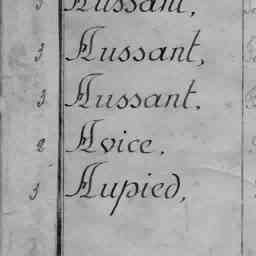 3 Aussant,
3 Aussant,
3 Aussant.
2 Avice.
3 Aupied,